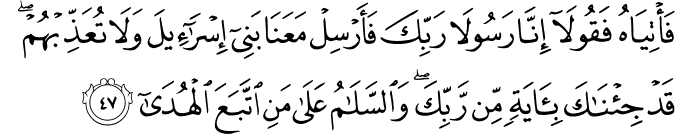 فَأْتِيَاهُ فَقُولَآ إِنَّا رَسُولَا رَبِّكَ فَأَرْسِلْ مَعَنَا بَنِىٓ إِسْرَٰٓءِيلَ وَلَا تُعَذِّبْهُمْ ۖ
قَدْ جِئْنَـٰكَ بِـَٔايَةٍ مِّن رَّبِّكَ ۖ وَٱلسَّلَـٰمُ عَلَىٰ مَنِ ٱتَّبَعَ ٱلْهُدَىٰٓ ٤٧